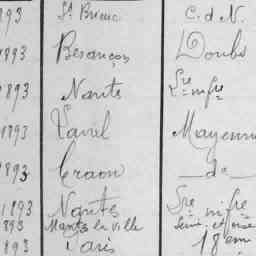 893 St Brieuc C. d. N.
1893 Besançon Doubs
1893 Nantes Lre Infre
1893 Laval Mayenne
1893 Craon _d°_
1893 Nantes Lre infre
893 Mantes la ville Seine et oise
893 Paris 18 em